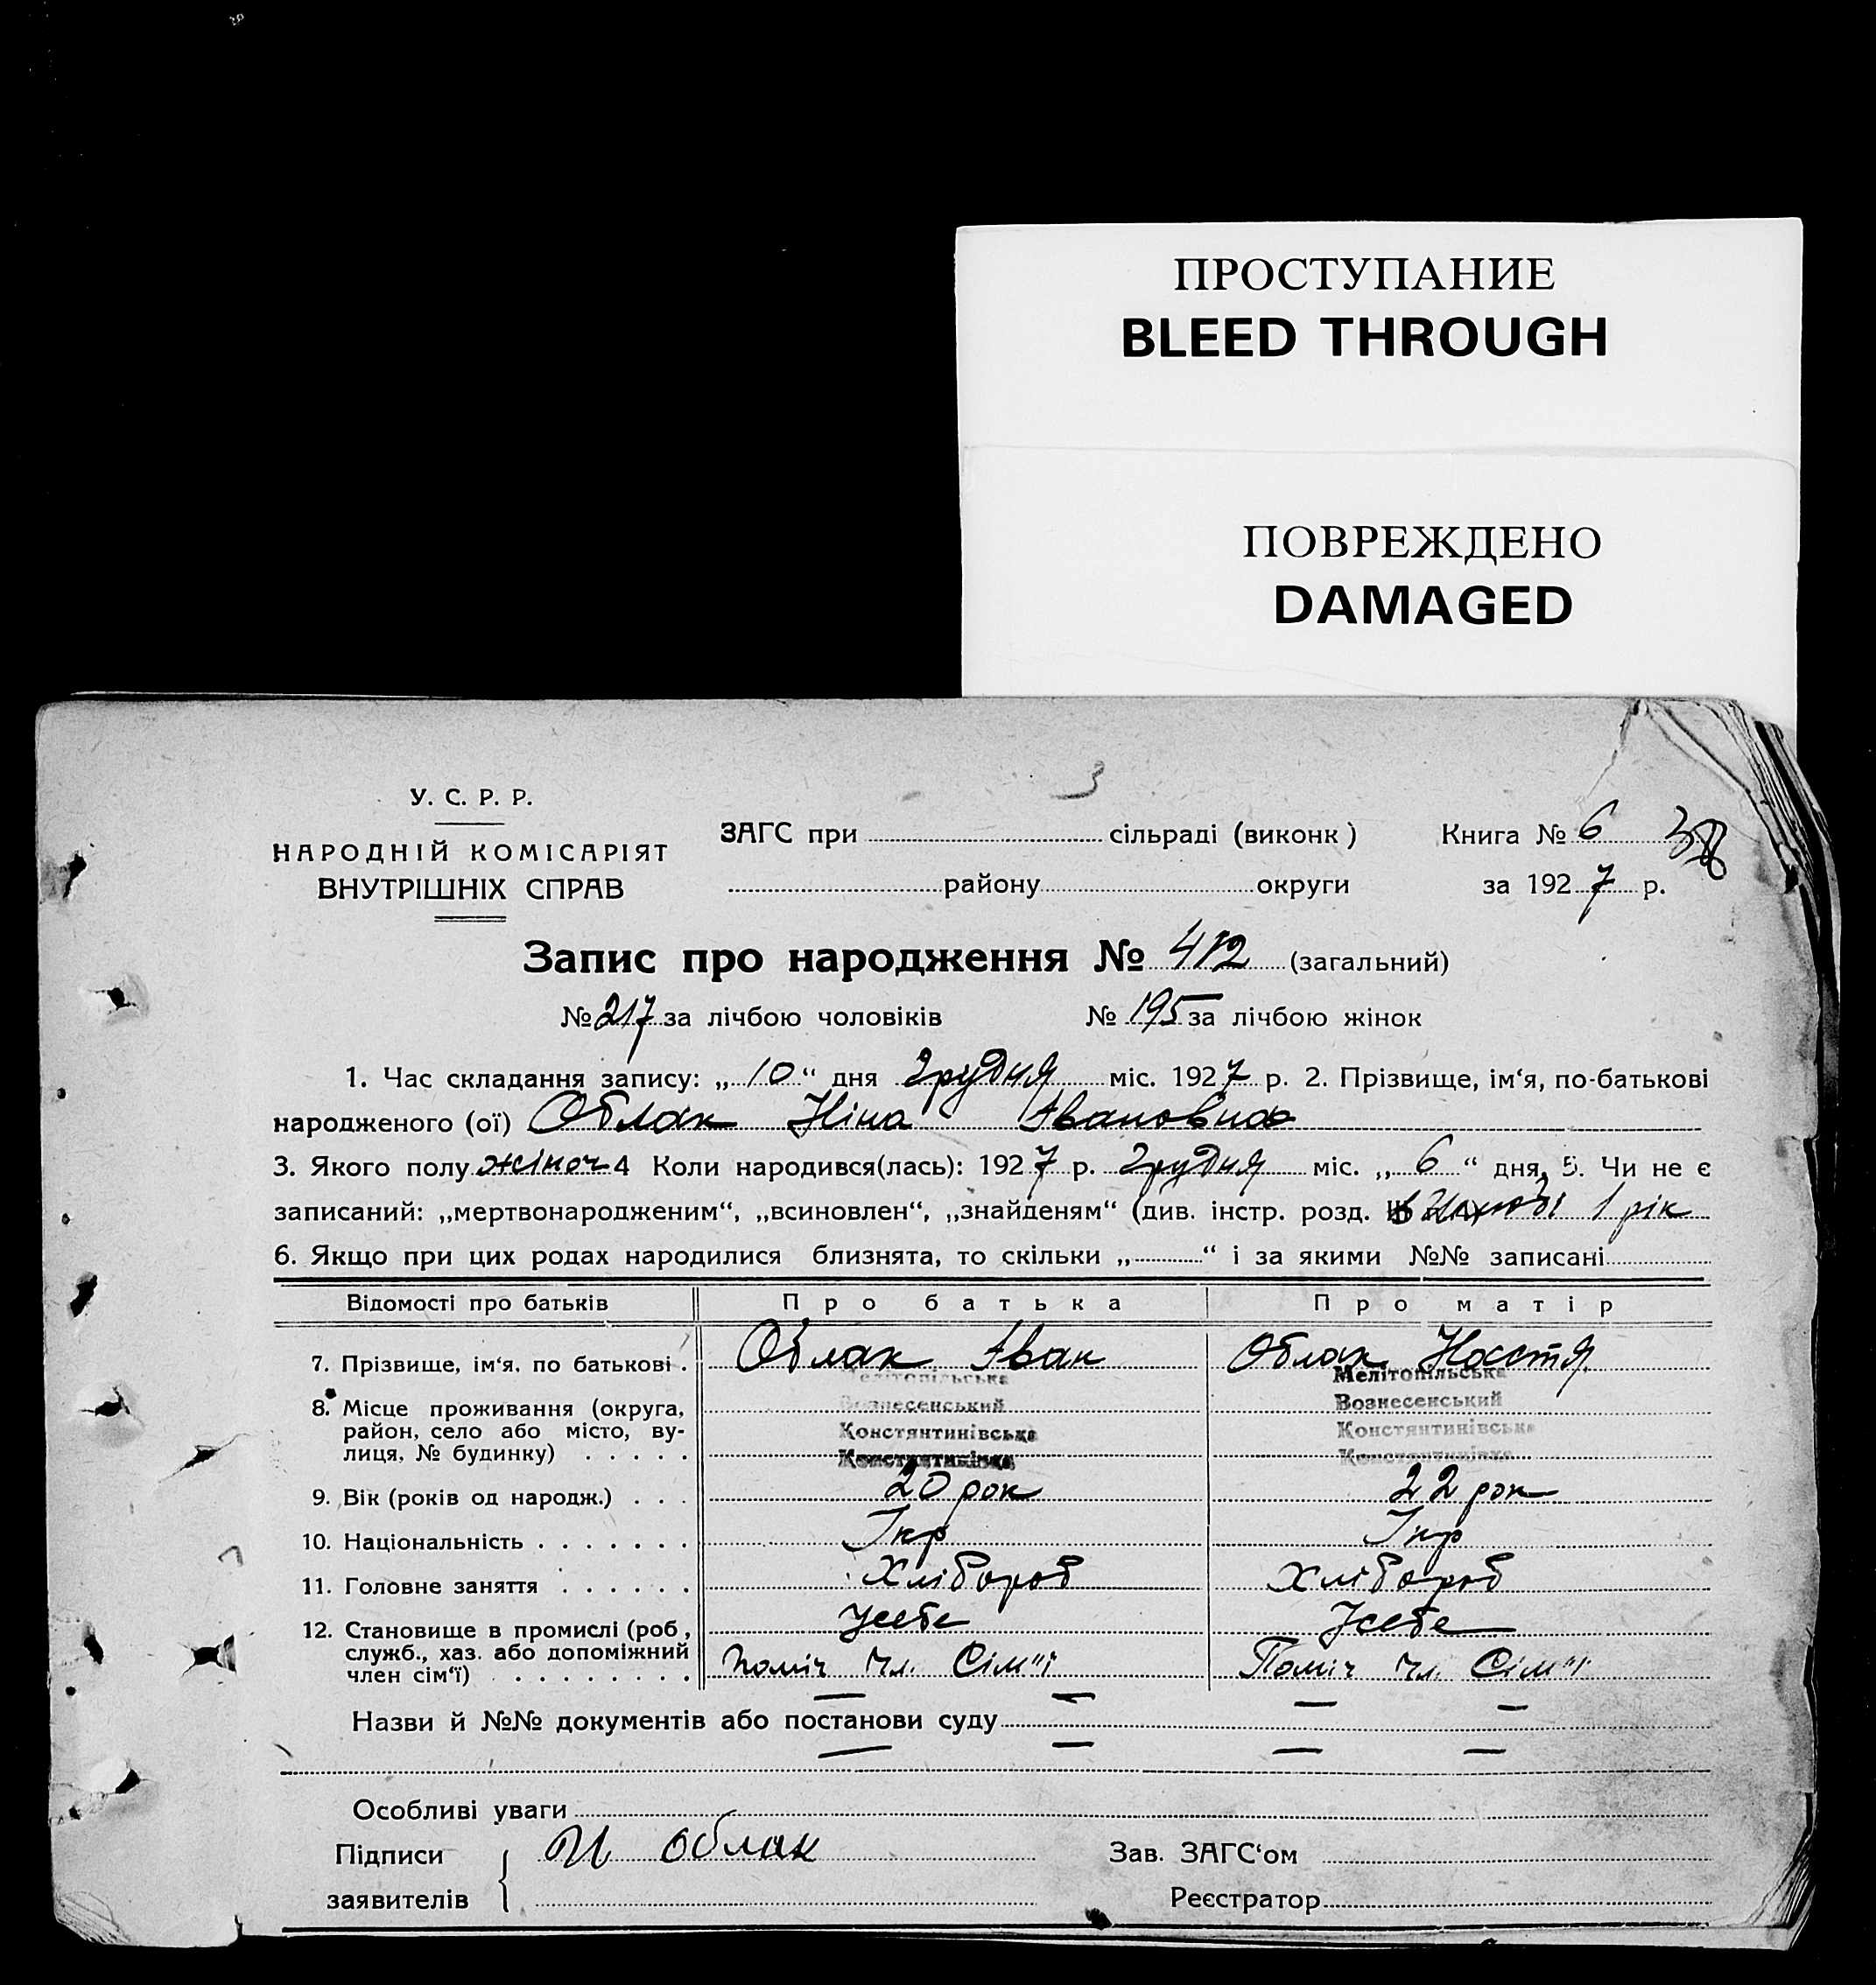 ПРОСТУПАНИЕ
BLEED THROUGH
ПОВРЕЖДЕНО
DAMAGED
3
У. С. Р. Р.
НАРОДНІЙ КОМІСАРІЯТ
ВНУТРІШНІХ СПРАВ
ЗАГС при сільраді (виконк) Книга № 6 38
району округи за 1927 р.
Запис про народження № 412 (загальний)
№ 217 за лічбою чоловіків № 195 за лічбою жінок
1. Час складання запису: „10“ дня Грудня міс. 1927 р. 2. Прізвище, ім‘я, по-батькові
народженого (ої) Облак Ніна Івановна
3. Якого полу жіноч 4 Коли народився(лась): 1927 р. Грудня міс. „6“ дня, 5. Чи не є
записаний: „мертвонародженим“, „всиновлен“, „знайденям“ (див. інстр. розд. 1 рік
6. Якщо при цих родах народилися близнята, то скільки „ “ і за якими №№ записані
Відомості про батьків Про батька Про матір
7. Прізвище, ім‘я, по батькові . Облак Іван Облак Настя
8. Місце проживання (округа, район, село або місто, вулиця, № будинку) . . . . .
Мелітопільська Мелітопільська
Вознесенський Вознесенський
Констянтинівська Констянтинівська
Констянтинівка Констянтинівка
9. Вік (років од народж.) . . . 20 рок 22 рок
10. Національність . . . . . . . Укр Укр
11. Головне заняття . . . . . . Хлібороб Хлібороб
12. Становище в промислі (роб, У себе У себе
служб., хаз. або допоміжний Поміч чл. Сім"ї Поміч чл. Сім"ї
член сім‘ї) . . . . . . . .
Назви й №№ документів або постанови суду
Особливі уваги
Підписи И Облак Зав. ЗАГС‘ом
заявителів Реєстратор